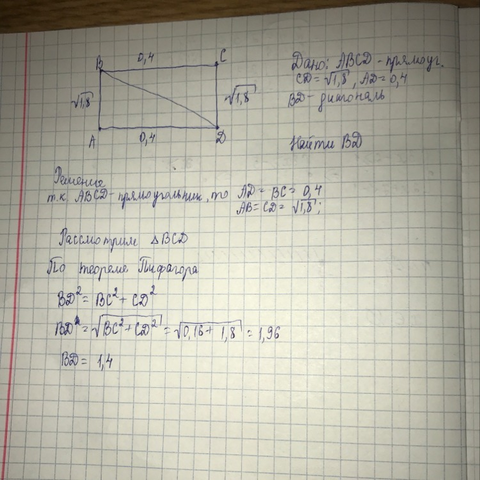 B 0,4 C
√1,8 √1,8
A 0,4 D
Дано: ABCD - прямоуг.
CD = √1,8, AD = 0,4
BD - диагональ
Найти BD
Решение
т.к. ABCD - прямоугольник, то AD = BC = 0,4
AB = CD = √1,8;
Рассмотрим △BCD
По теореме Пифагора
BD² = BC² + CD²
BD² = √BC² + CD² = √0,16 + 1,8 = 1,96
BD = 1,4